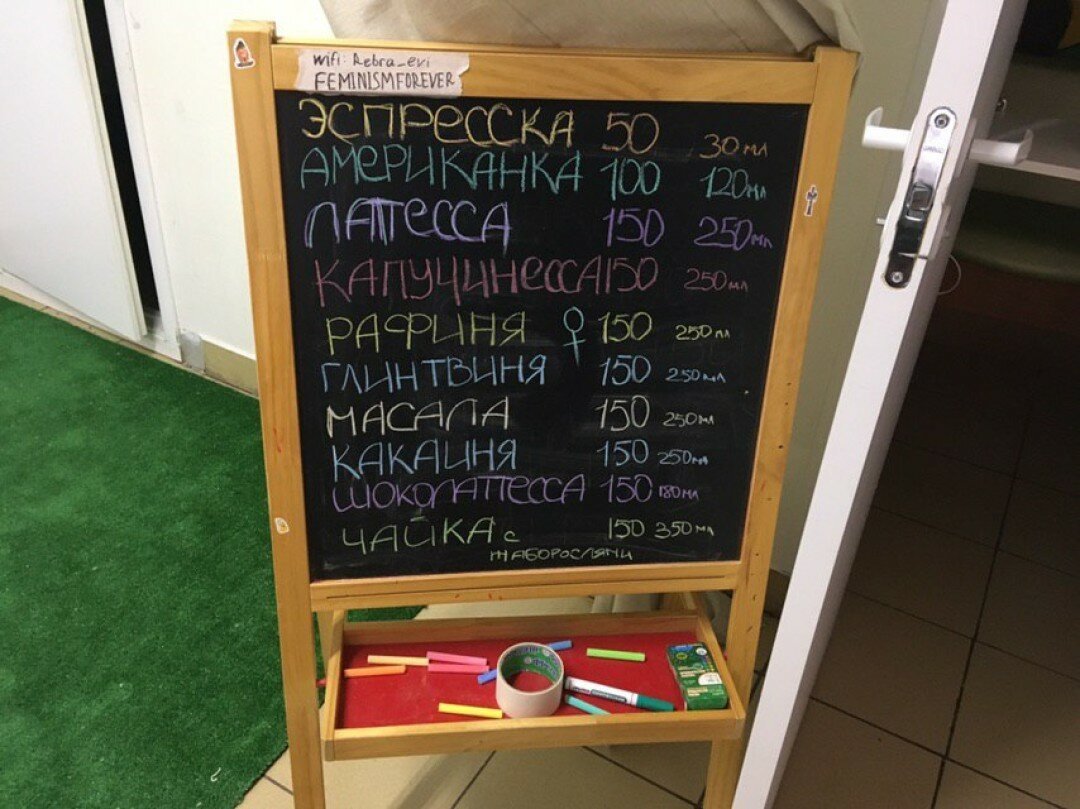 wifi: Rebra_evi
FEMINISMFOREVER
ЭСПРЕССКА 50 30 мл
АМЕРИКАНКА 100 120 мл
ЛАТТЕССА 150 250 мл
КАПУЧИНЕССА 150 250 мл
РАФИНЯ ♀ 150 250 мл
ГЛИНТВИНЯ 150 250 мл
МАСАЛА 150 250 мл
КАКАИНЯ 150 250 мл
ШОКОЛАТТЕССА 150 180 мл
ЧАЙКА с 150 350 мл